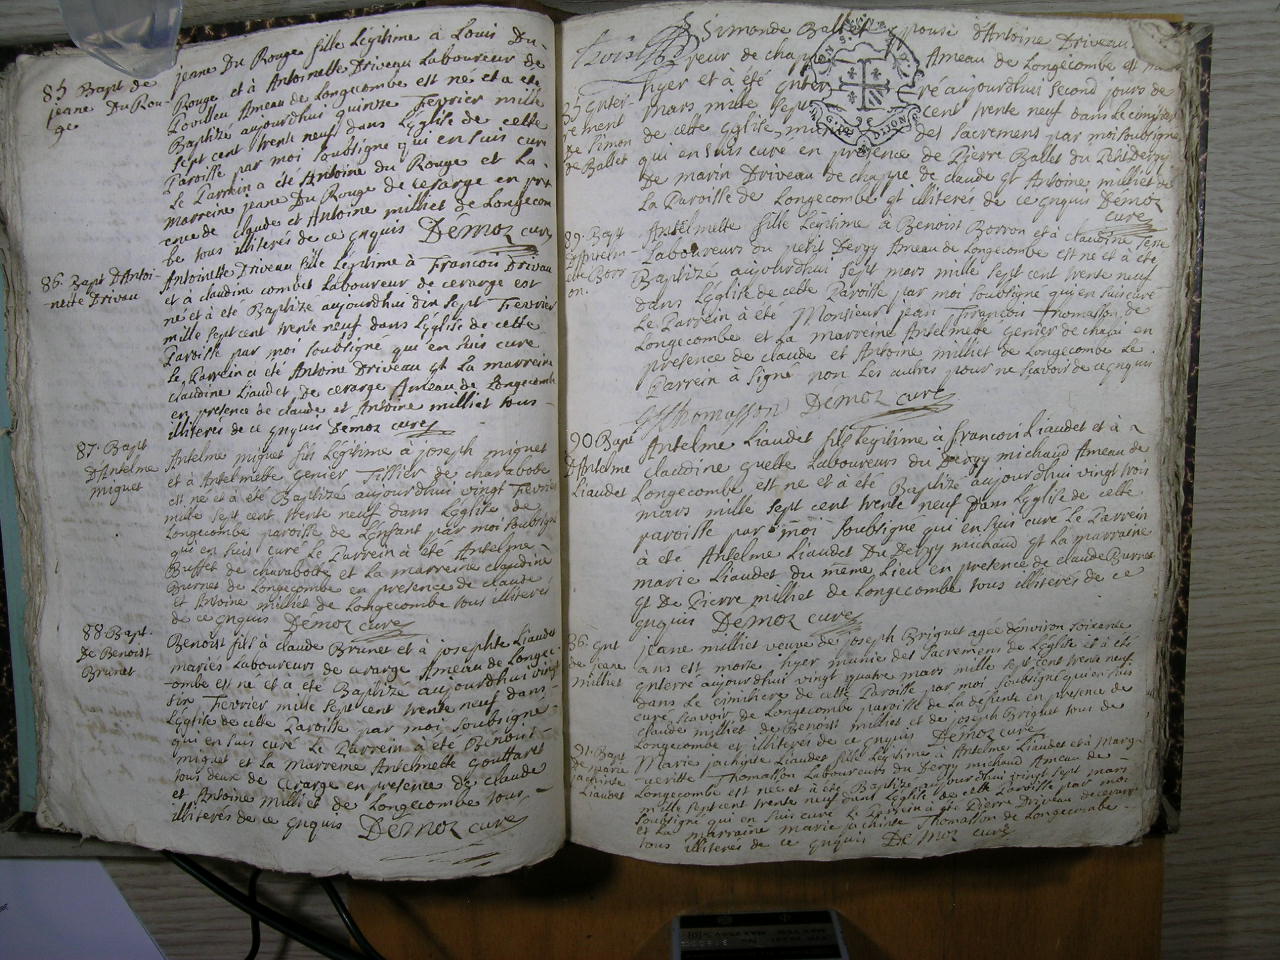 85 Bapt de
jeane Du Rou-
ge
jeane Du Rouge fille Légitime à Louis Du-
Rouge et à Antoinette Driveau Laboureur de
Ameau de Longecombe est né et a eté
Baptizé aujourdhui quinze Fevrier mille
sept cent trente neuf dans Léglise de cette
Paroisse par moi soubsigné qui en suis curé
Le Parrein a été Antoine du Rouge et La
marreine jeane Du Rouge de cerarge en pre
cence de claude et Antoine milliet de Longecom
be tous illiterés de ce gnquis Démoz curé
86 Bapt d'Antoi-
nette Driveau
Antoinette Driveau fille Légitime à Francois Driveau
et à claudine combet Laboureur de cerarge est
né et a été Baptizé aujourdhui dix sept Fevrier
mille sept cent trente neuf dans Léglise de cette
Paroisse par moi soubsigné qui en suis curé
Le Parrein a été Antoine Driveau qt La marreine
claudine Liaudet de cerarge Ameau de Longecombe
en presence de claude et Antoine milliet tous
illiterés de ce gnquis Démoz curé
87 Bapt
D'Antelme
miguet
Antelme miguet fils Légitime à joseph miguet
et à Antelmette Genier Tissier de charabote
est né et à été Baptizé aujourdhui vingt Fevrier
mille sept cent trente neuf dans Léglise de
Longecombe paroisse de par moi soubsigné
qui en suis curé Le Parrein à été Antelme
Buffet de charabotte et La marreine claudine
Burnet de Longecombe en presence de claude
et Antoine milliet de Longecombe tous illiterés
de ce gnquis Démoz curé
88 Bapt
De Benoist
Brunet
Benoist fils à claude Brunet et à josephte Liaudet
mariés Laboureurs de cerarge Ameau de Longec-
ombe est né et a été Baptizé aujourdhui vingt
six Fevrier mille sept cent trente neuf dans
Léglise de cette Paroisse par moi soubsigné
qui en suis curé Le Parrein a été Benoist
miguet et La marreine Antelmette Gouttaret
tous deux de Cerarge en presence de claude
et Antoine milliet de Longecombes tous
illiterés de ce gnquis Démoz curé
35 Gnter-
rement
de Simon
de Ballet
Simonde Ballet Epouse d'Antoine Driveau
de chappe Ameau de Longecombe est
hyer et à été Gnterré aujourdhui second jours de
mars mille sept cent trente neuf dans Le cimitiere
de cette Gglise, des Sacremens par moi soubsigné
qui en suis curé en présence de Pierre Ballet du Petit dergy
De marin Driveau de chappe de claude qt Antoine milliet de
La Paroisse de Longecombe qt illiterés de ce gnquis Démoz
curé
89 Bapt
D'Antelm
tte Borr
on
Antelmette fille Légitime à Benoist Borron et à claudine
Laboureurs du petit Dergy Ameau de Longecombe est né et à été
Baptizé aujourdhui sept mars mille sept cent trente neuf
dans Léglise de cette Paroisse par moi soubsigné qui en suis curé
Le Parrein à été Monsieur jean François Thomasson de
Longecombe et La marreine Antelmette Genier de en
presence de claude et Antoine milliet de Longecombe Le
Parrein à signé non Les autres pour ne scavoir de ce gnquis
Thomasson Demoz curé
90 Bapt
D'Antelme
Liaudet
Antelme Liaudet fils Legitime à francois Liaudet et à
claudine guette Laboureurs du Dergy michaud Ameau de
Longecombe est né et à été Baptizé aujourdhui vingt trois
mars mille sept cent trente neuf dans Léglise de cette
paroisse par moi soubsigné qui en suis curé Le Parrein
à été Antelme Liaudet Du Dergy michaud qt La marraine
marie Liaudet du méme Lieu en presence de claude Burnet
qt De Pierre milliet de Longecombe tous illiterés de ce
gnquis Demoz curé
36 Gnt
de jeane
milliet
jeane milliet veuve de joseph Briguet agée denviron soixante
ans est morte hyer munie des Sacremens de Léglise et à été
Gnterré aujourdhui vingt quatre mars mille sept cent trente neuf
dans Le cimitiere de cette Paroisse par moi soubsigné qui en suis
curé scavoir de Longecombe paroisse de La en presence de
claude milliet de Benoist milliet et de joseph Briguet tous de
Longecombe et illiterés de ce gnquis Demoz curé
91 Bapt
de marie
jachinte
Liaudet
Marie jachinte Liaudet fille Légitime à Antelme Liaudet et à Marg-
ueritte Thomasson Laboureurs du Dergy michaud Ameau de
Longecombe est né et à été Baptizé aujourdhui vingt sept mars
mille sept cent trente neuf dans Léglise de cette Paroisse par moi
soubsigné qui en suis curé Le Parrein à été Pierre Driveau de
et La marraine marie jachinte Thomasson de Longecombe
tous illiterés de ce gnquis De Moz curé